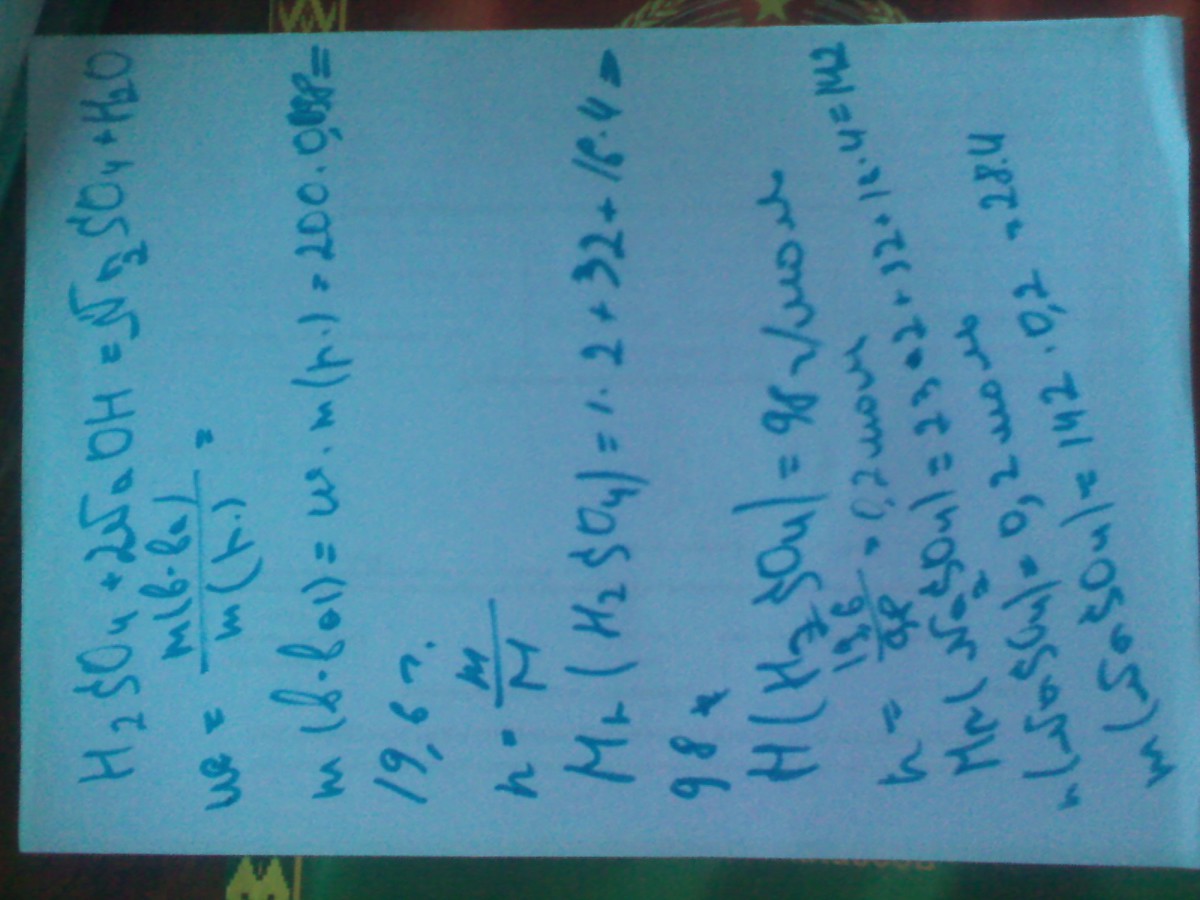 H₂SO₄ + 2NaOH = Na₂SO₄ + H₂O
w = m(в-ва) / m(р.) =
m(в-ва) = w · m(р.) = 200 · 0,098 =
19,6 г.
n = m / M
Mr(H₂SO₄) = 1 · 2 + 32 + 16 · 4 =
98
M(H₂SO₄) = 98 г/моль
n = 19,6 / 98 = 0,2 моль
Mr(Na₂SO₄) = 23 · 2 + 32 + 16 · 4 = 142
n(Na₂SO₄) = 0,2 моль
m(Na₂SO₄) = 142 · 0,2 = 28.4